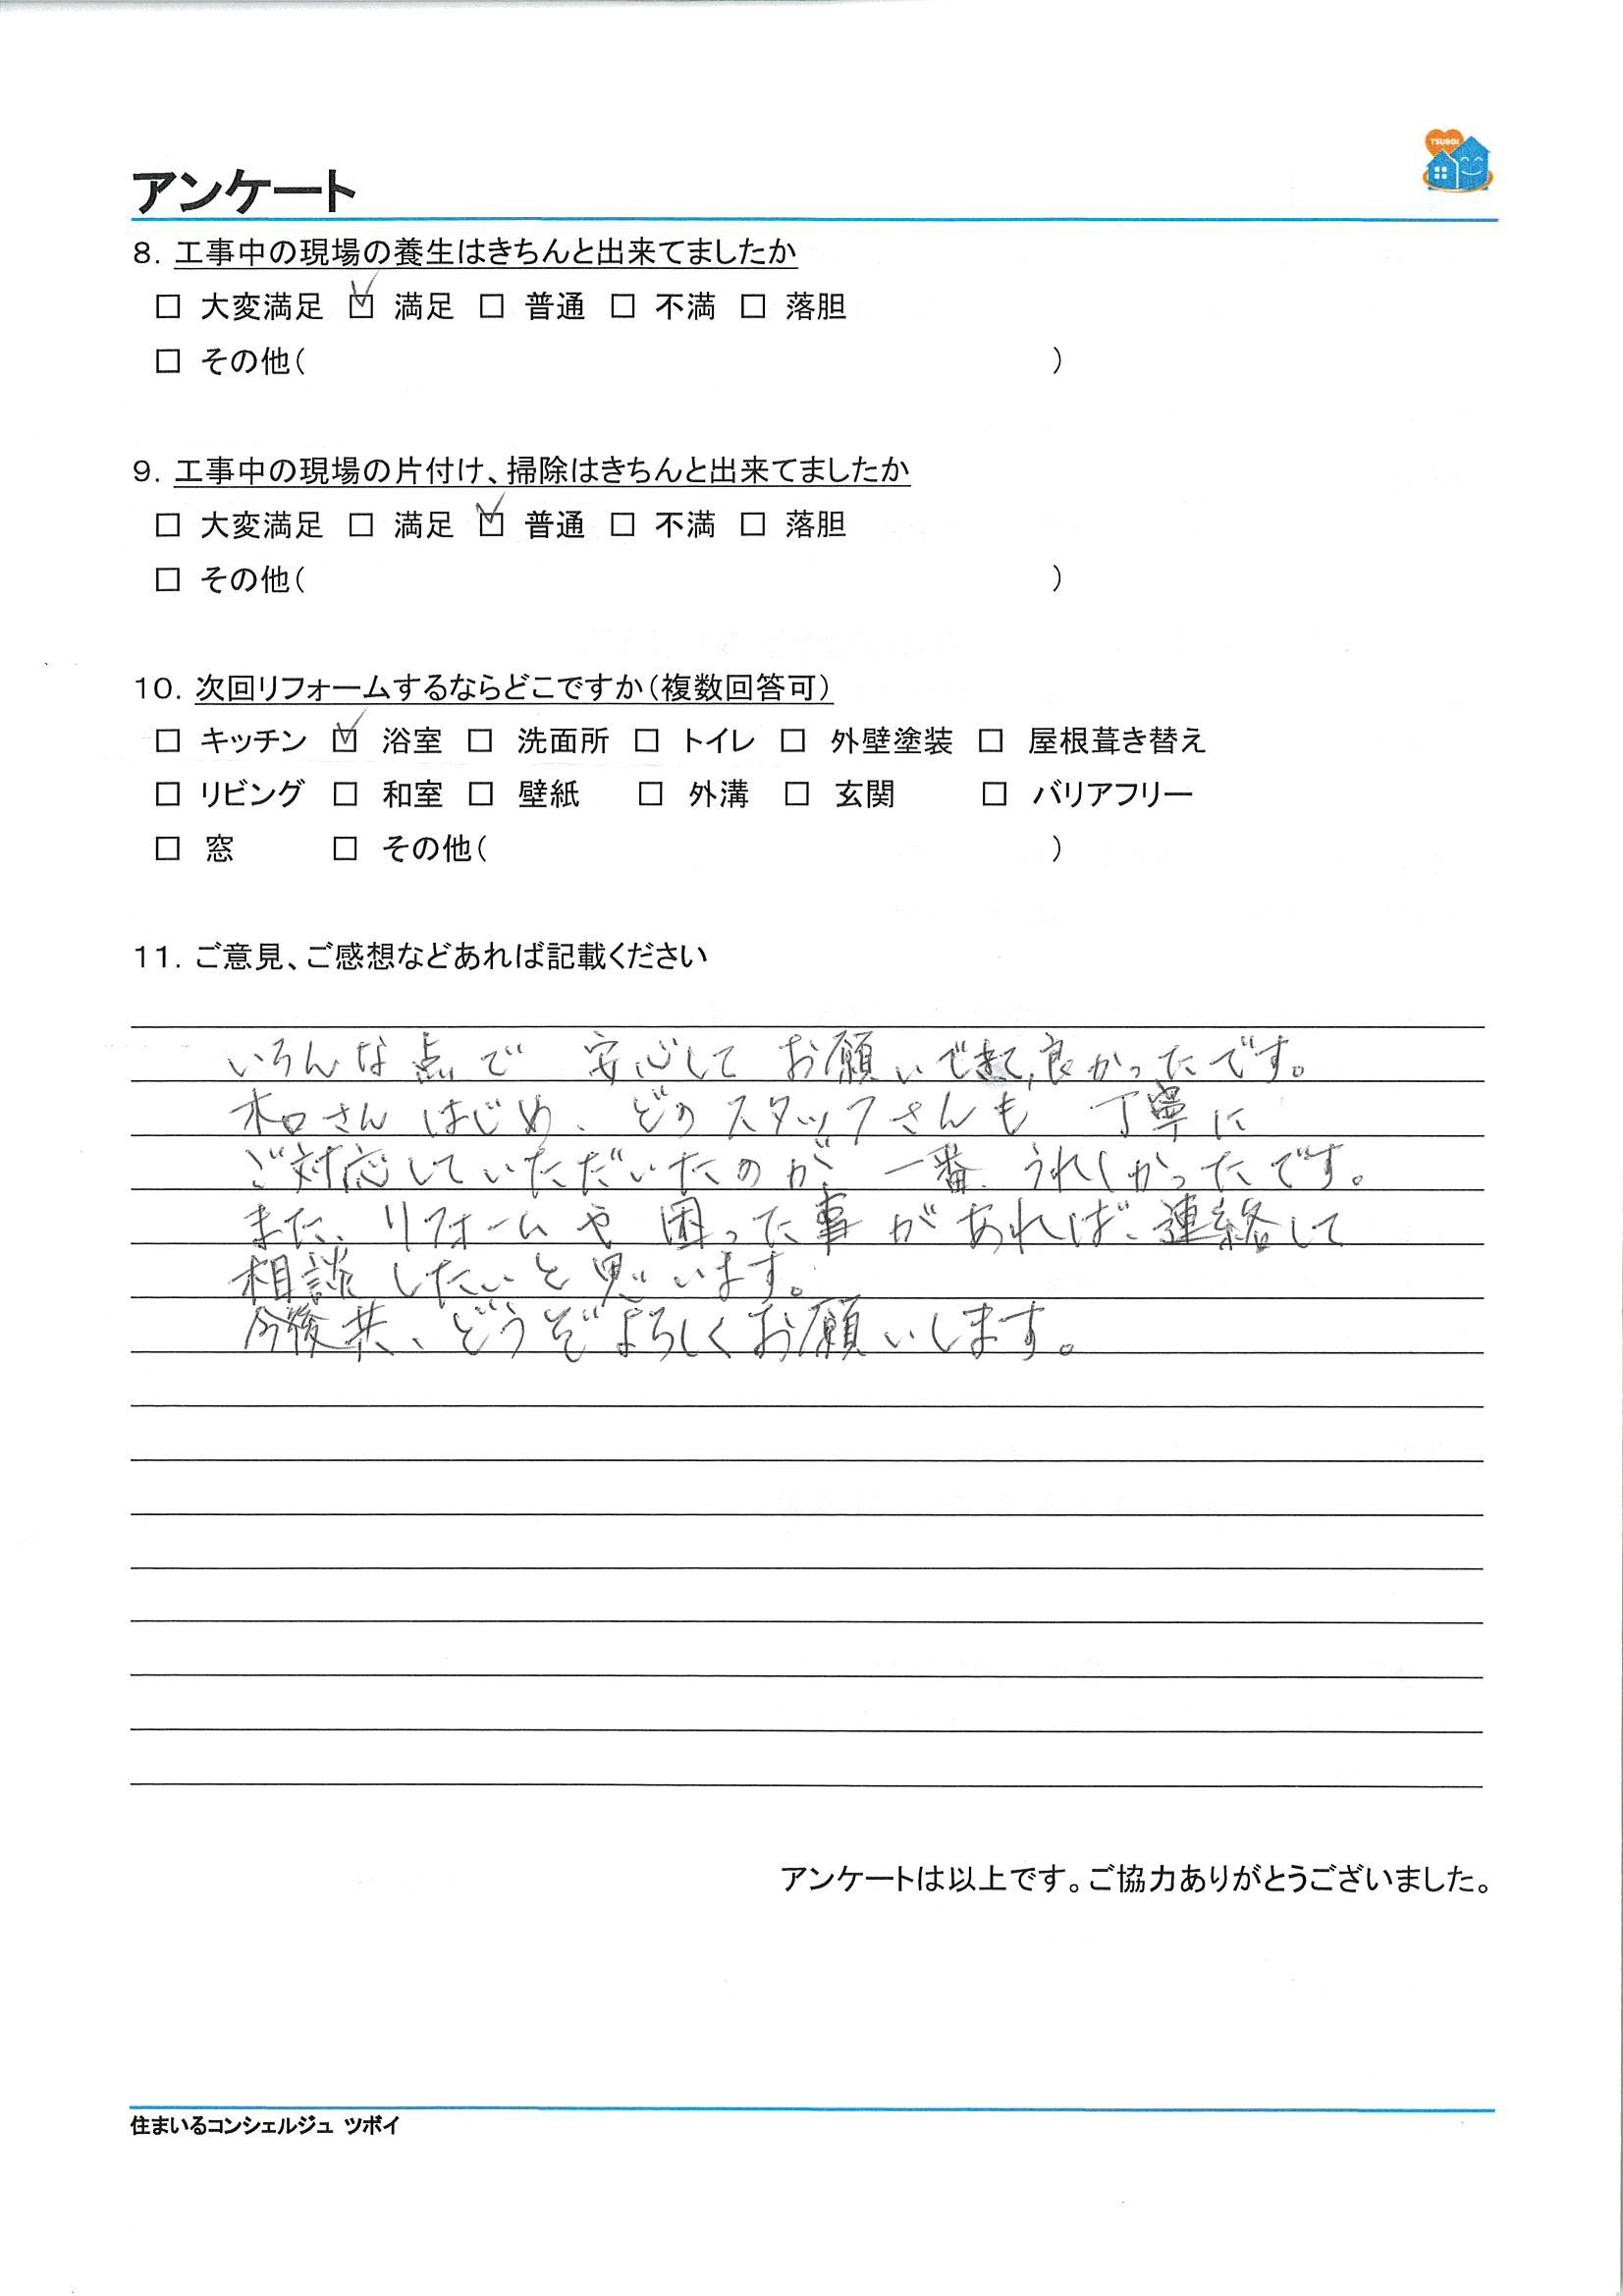 TSUBOI
アンケート
8. 工事中の現場の養生はきちんと出来てましたか
□ 大変満足 ☑ 満足 □ 普通 □ 不満 □ 落胆
□ その他( )
9. 工事中の現場の片付け、掃除はきちんと出来てましたか
□ 大変満足 □ 満足 ☑ 普通 □ 不満 □ 落胆
□ その他( )
10. 次回リフォームするならどこですか(複数回答可)
□ キッチン ☑ 浴室 □ 洗面所 □ トイレ □ 外壁塗装 □ 屋根葺き替え
□ リビング □ 和室 □ 壁紙 □ 外溝 □ 玄関 □ バリアフリー
□ 窓 □ その他( )
11. ご意見、ご感想などあれば記載ください
いろんな点で 安心して お願いできて、良かったです。
木口さん はじめ、どのスタッフさんも 丁寧に
ご対応していただいたのが、一番、うれしかったです。
また、リフォームや 困った事があれば、連絡して
相談したいと思います。
今後共、どうぞよろしくお願いします。
アンケートは以上です。ご協力ありがとうございました。
住まいるコンシェルジュ ツボイ